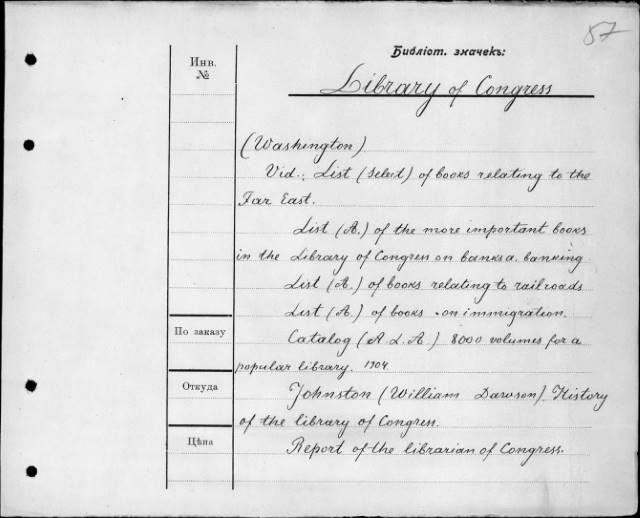 57
Библіот. значекъ:
Инв.
№
Library of Congress
(Washington)
Vid.: List (select) of books relating to the
Far East.
List (A.) of the more important books
in the Library of Congress on banks a. banking
List (A.) of books relating to railroads
List (A.) of books on immigration.
Catalog (A. L. A.) 8000 volumes for a
popular library. 1904
Johnston (William Dawson). History
of the library of Congress.
Report of the librarian of Congress.
По заказу
Откуда
Цѣна